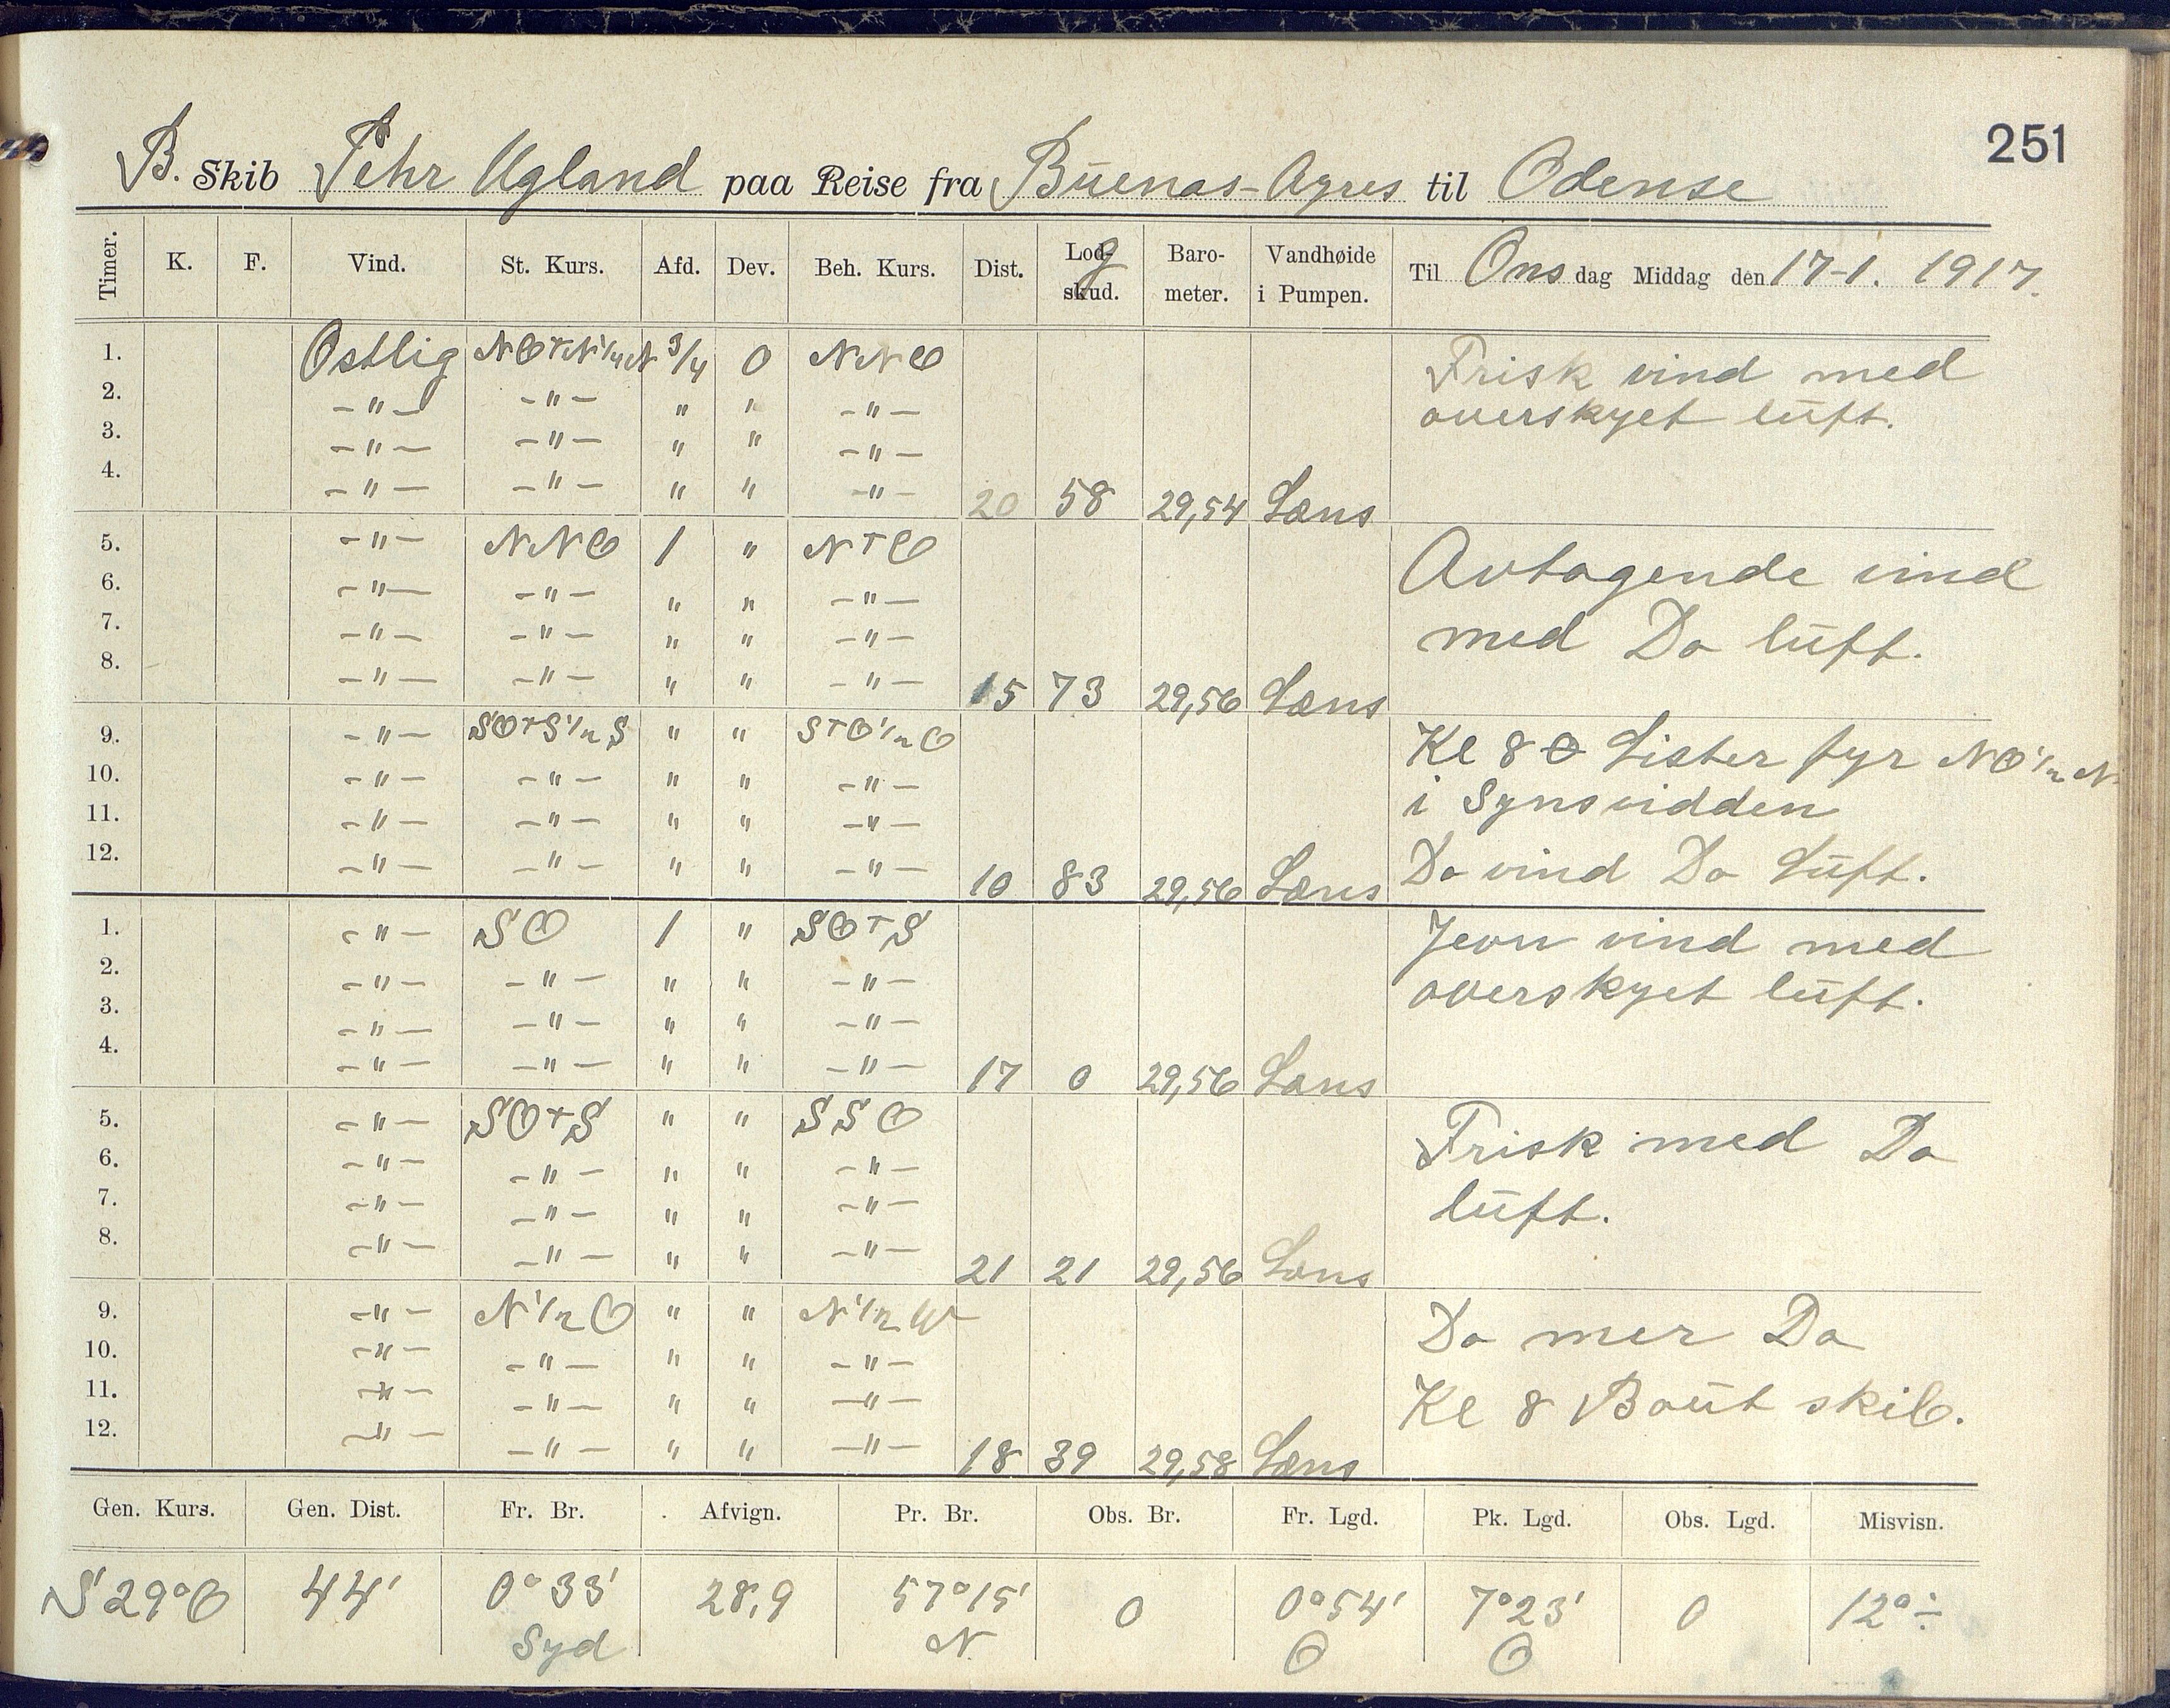 251
B. Skib Pehr Ugland paa Reise fra Buenos-Ayres til Odense
Timer. K. F. Vind. St. Kurs. Afd. Dev. Beh. Kurs. Dist. Lodskud. g Barometer. Vandhøide i Pumpen. Til Onsdag Middag den 17-1. 1917.
1. Ostlig NOTN¼N ¾ 0 NNO Frisk vind med
2. -"- -"- " " -"- overskyet luft.
3. -"- -"- " " -"-
4. -"- -"- " " -"- 20 58 29,54 Læns
5. -"- NNO 1 " NTO Avtagende vind
6. -"- -"- " " -"-
7. -"- -"- " " -"- med Do luft.
8. -"- -"- " " -"- 15 73 29,56 Læns
9. -"- SOTS½S " " STO½O Kl 8 Lister fyr NO½N
10. -"- -"- " " -"- i Synsvidden
11. -"- -"- " " -"-
12. -"- -"- " " -"- 10 83 29,56 Læns Do vind Do Luft.
1. -"- SO 1 " SOTS Jevn vind med
2. -"- -"- " " -"- overskyet luft.
3. -"- -"- " " -"-
4. -"- -"- " " -"- 17 0 29,56 Læns
5. -"- SOTS " " SSO Frisk med Do
6. -"- -"- " " -"-
7. -"- -"- " " -"- luft.
8. -"- -"- " " -"- 21 21 29,56 Læns
9. -"- N½O " " N½W Do mer Do
10. -"- -"- " " -"-
11. -"- -"- " " -"- Kl 8 Baut skib.
12. -"- -"- " " -"- 18 39 29,58 Læns
Gen. Kurs. Gen. Dist. Fr. Br. Afvign. Pr. Br. Obs. Br. Fr. Lgd. Pk. Lgd. Obs. Lgd. Misvisn.
S 29° O 44' 0° 33' 28,9 57° 15' 0 0° 54' 7° 23' 0 12° ÷
Syd N O O